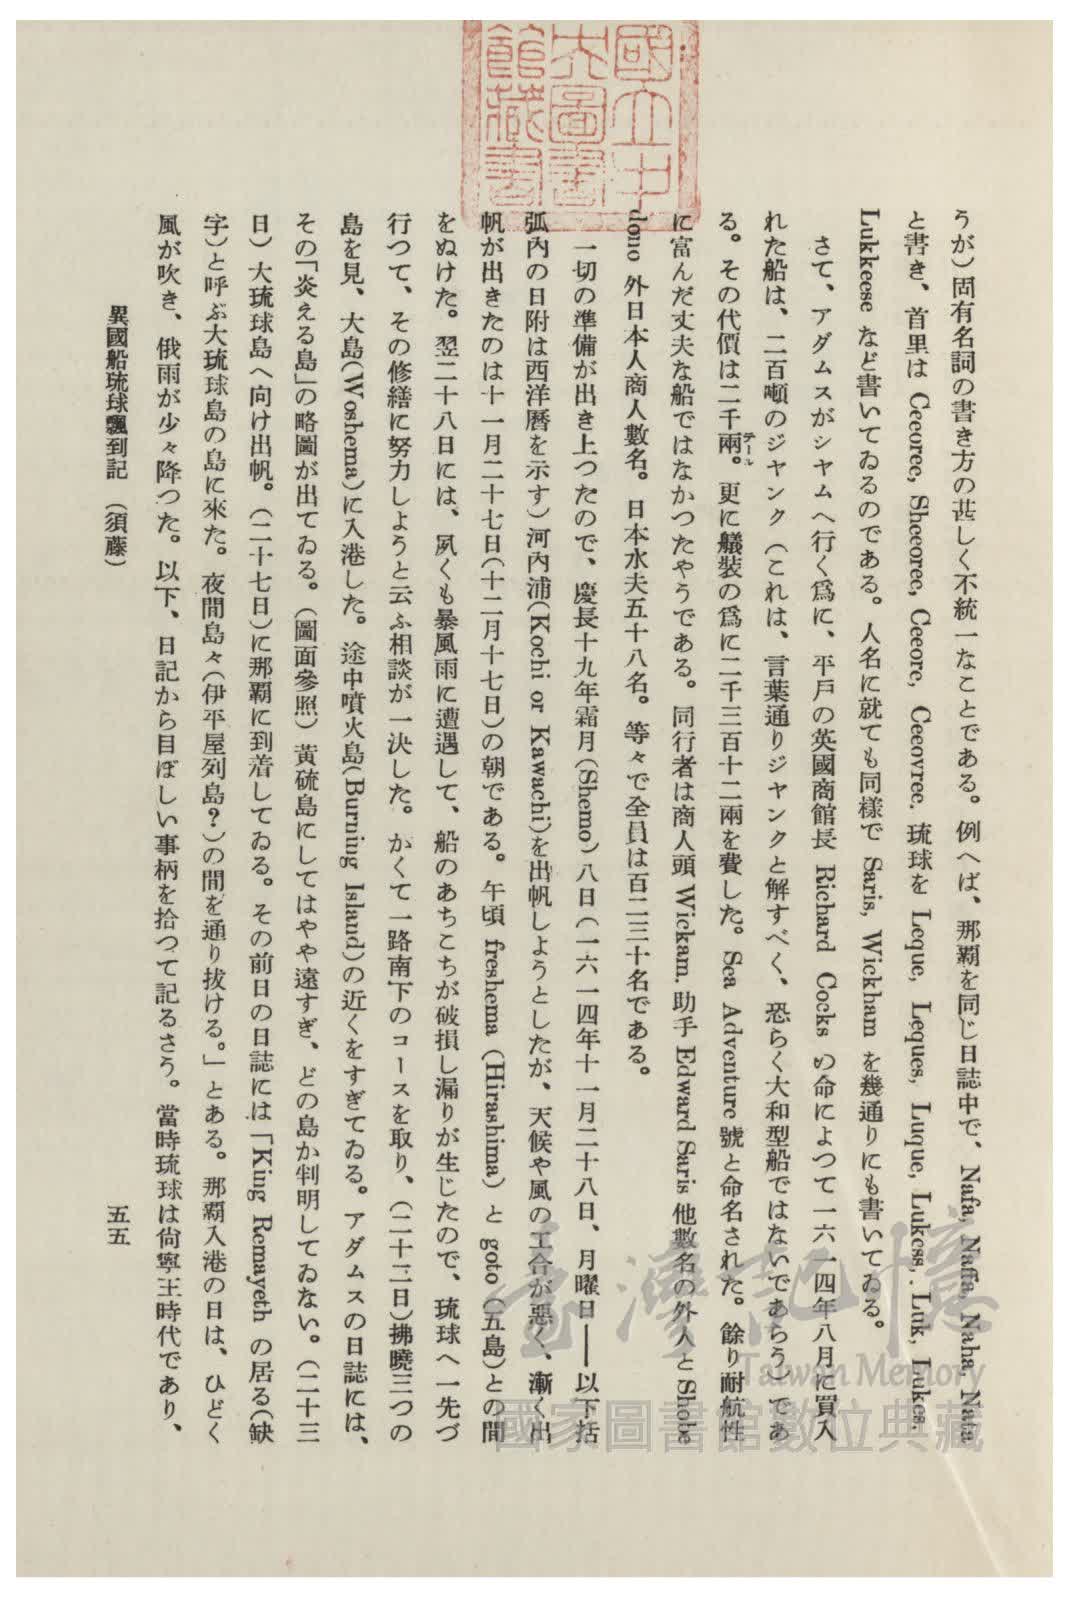 國立中
央圖書
館藏書
うが）固有名詞の書き方の甚しく不統一なことである。例へば、那覇を同じ日誌中で、Nafa, Naffa, Naha, Nata
と書き、首里は Ceeoree, Sheeoree, Ceeore, Ceeovree. 琉球を Leque, Leques, Luque, Lukess, Luk, Lukes.
Lukkeese など書いてゐるのである。人名に就ても同樣で Saris, Wickham を幾通りにも書いてゐる。
さて、アダムスがシヤムへ行く爲に、平戸の英國商館長 Richard Cocks の命によつて一六一四年八月に買入
れた船は、二百噸のジヤンク（これは、言葉通りジヤンクと解すべく、恐らく大和型船ではないであらう）であ
る。その代價は二千兩テール。更に艤裝の爲に二千三百十二兩を費した。Sea Adventure 號と命名された。餘り耐航性
に富んだ丈夫な船ではなかつたやうである。同行者は商人頭 Wickam. 助手 Edward Saris 他數名の外人と Shobe
dono 外日本人商人數名。日本水夫五十八名。等々で全員は百二三十名である。
一切の準備が出き上つたので、慶長十九年霜月(Shemo)八日（一六一四年十一月二十八日、月曜日――以下括
弧內の日附は西洋曆を示す）河內浦(Kochi or Kawachi)を出帆しようとしたが、天候や風の工合が惡く、漸く出
帆が出きたのは十一月二十七日(十二月十七日)の朝である。午頃 freshema (Hirashima) と goto (五島)との間
をぬけた。翌二十八日には、夙くも暴風雨に遭遇して、船のあちこちが破損し漏りが生じたので、琉球へ一先づ
行つて、その修繕に努力しようと云ふ相談が一決した。かくて一路南下のコースを取り、(二十三日)拂曉三つの
島を見、大島(Woshema)に入港した。途中噴火島(Burning Island)の近くをすぎてゐる。アダムスの日誌には、
その「炎える島」の略圖が出てゐる。（圖面參照）黃硫島にしてはやや遠すぎ、どの島か判明してゐない。(二十三
日）大琉球島へ向け出帆。（二十七日）に那覇に到着してゐる。その前日の日誌には「King Remayeth の居る(缺
字）と呼ぶ大琉球島の島に來た。夜間島々（伊平屋列島？）の間を通り拔ける。」とある。那覇入港の日は、ひどく
風が吹き、俄雨が少々降つた。以下、日記から目ぼしい事柄を拾つて記るさう。當時琉球は尙寧王時代であり、
異國船琉球飄到記　（須藤）
五五
臺灣記憶
Taiwan Memory
國家圖書館數位典藏